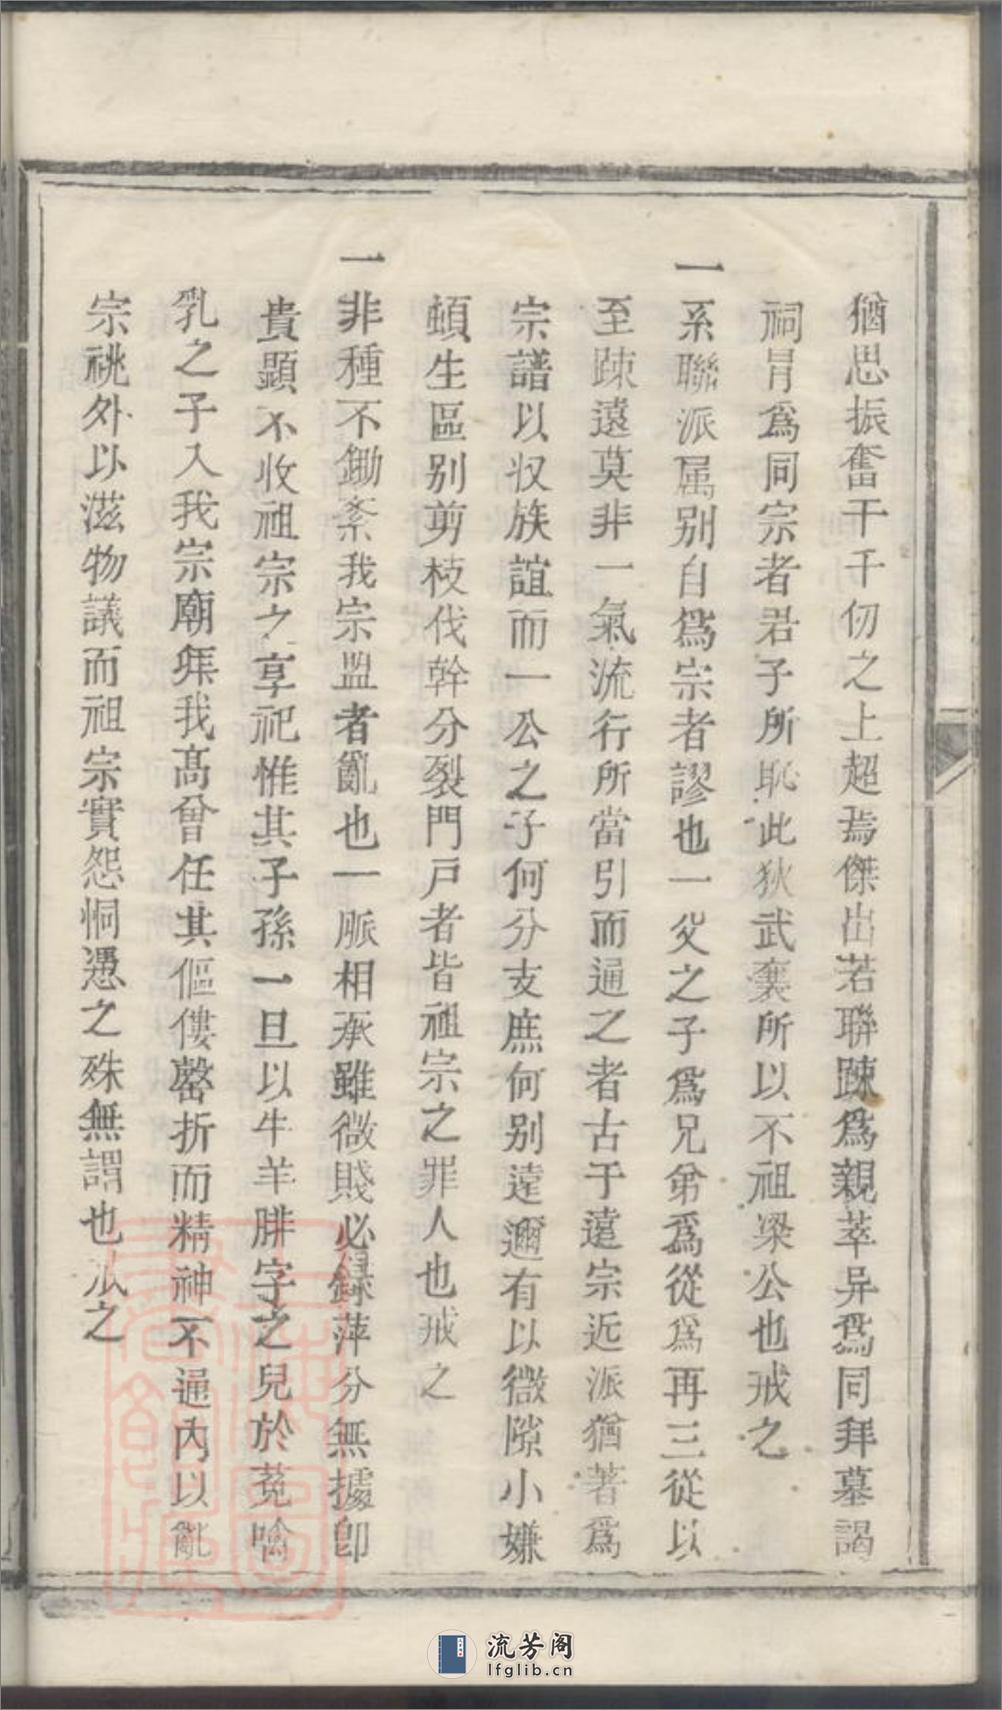 猶思振奮千千仞之上超焉傑出若聯踈為親萃异為同拜墓謁
祠冐為同宗者君子所恥此狄武襄所以不祖梁公也戒之
一系聯派属别自為宗者謬也一父之子為兄弟為從為再三從以
至踈遠莫非一氣流行所當引而通之者古于遠宗近派猶著為
宗譜以収族誼而一公之子何分支庶何别遠邇有以微隙小嫌
頓生區别剪枝伐幹分裂門戸者皆祖宗之罪人也戒之
一非種不鋤紊我宗盟者亂也一脈相承雖微賤必錄萍分無據卽
貴顯不收祖宗之享祀惟其子孫一旦以牛羊腓字之兒於菟噏
乳之子入我宗廟拜我髙曾任其傴僂罄折而精神不通内以亂
宗祧外以滋物議而祖宗實怨恫愚之殊無謂也戒之
流芳阁
lfglib.cn